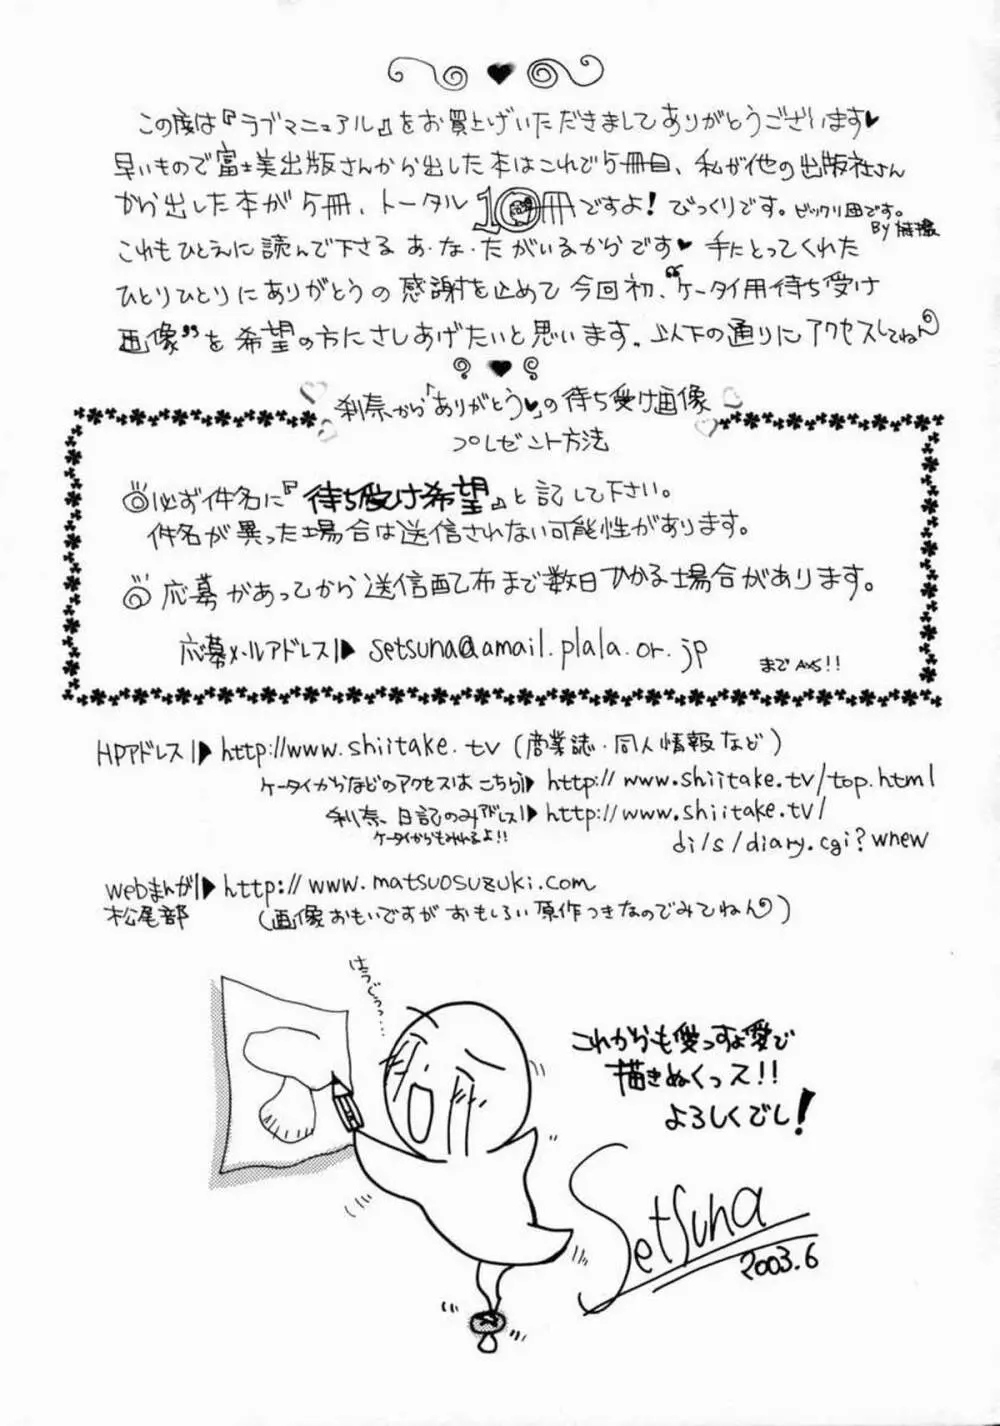 この度は『ラブマニュアル』をお買上げいただきましてありがとうございます♥
早いもので富士美出版さんから出した本はこれで5冊目、私が他の出版社さん
から出した本が5冊、トータル10冊ですよ！びっくりです。ビックリ団です。
これもひとえに読んで下さるあ・な・たがいるからです♥手にとってくれた
ひとりひとりにありがとうの感謝を止めて今回初、“ケータイ用待ち受け
画像”を希望の方にさしあげたいと思います。以下の通りにアクセスしてねん
刹奈から「ありがとう♥」の待ち受け画像
プレゼント方法
◎必ず件名に『待ち受け希望』と記して下さい。
件名が異った場合は送信されない可能性があります。
◎応募があってから送信配布まで数日かかる場合があります。
応募メールアドレス▶setsuna@amail.plala.or.jp
までAxS!!
HPアドレス▶http://www.shiitake.tv（商業誌・同人情報など）
ケータイからなどのアクセスはこちら▶http://www.shiitake.tv/top.html
刹奈、日記のみアドレス▶http://www.shiitake.tv/
ケータイからもみれるよ!!
di/s/diary.cgi?wnew
webまんが▶http://www.matsuosuzuki.com
松尾部
（画像おもいですがおもしろい原作つきなのでみてねん）
はうじうっ…
これからも愛っすよ愛で
描きぬくっス!!
よろしくでし！
Setsuna
2003.6